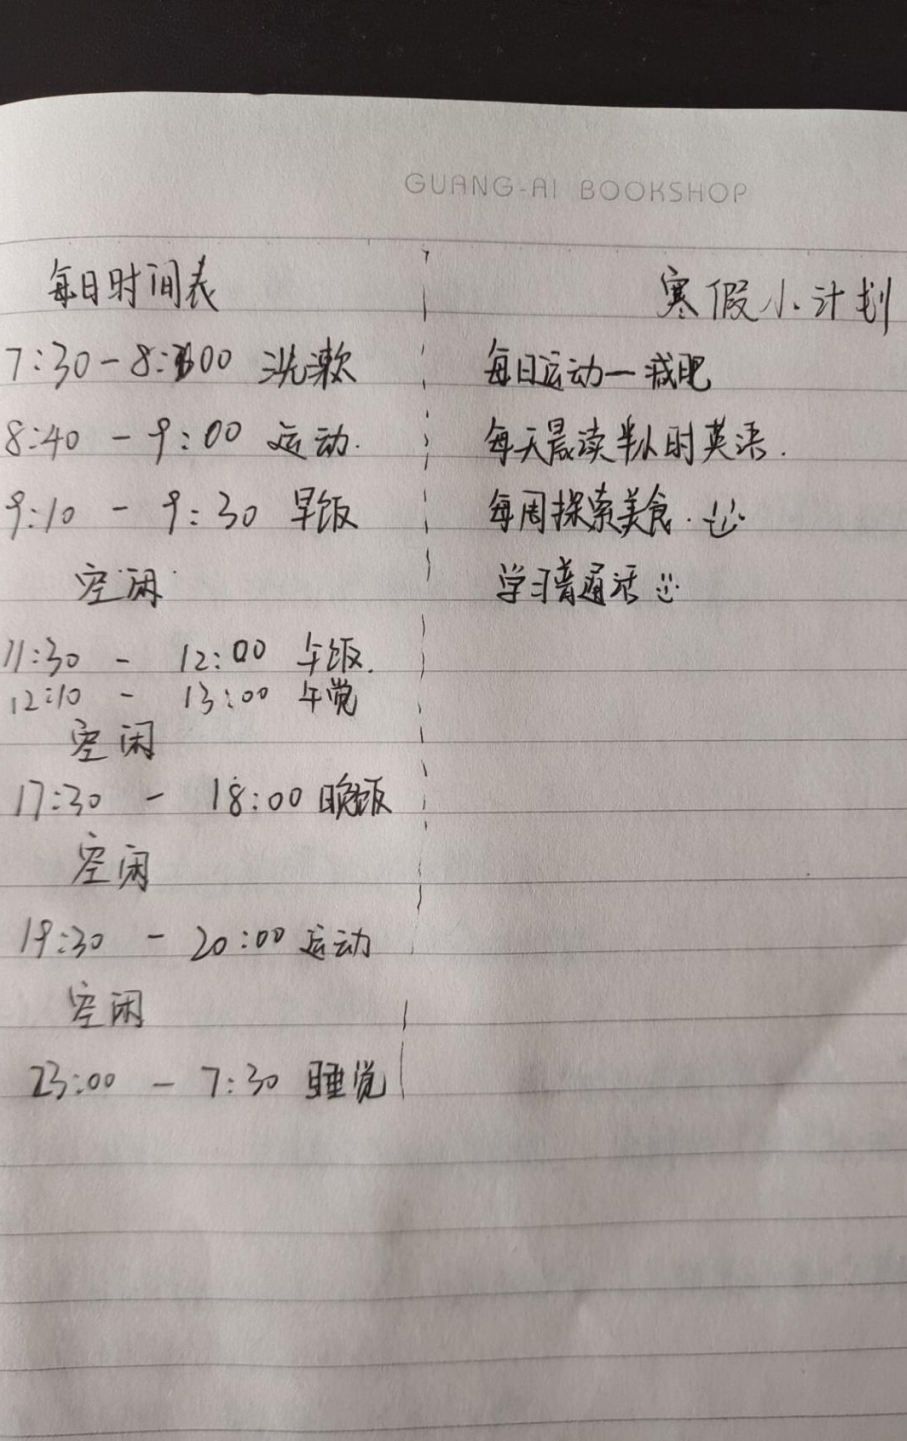 GUANG-AI BOOKSHOP
每日时间表
7:30-8:00 洗漱
8:40 - 9:00 运动.
9:10 - 9:30 早饭
空闲
11:30 - 12:00 午饭.
12:10 - 13:00 午觉
空闲
17:30 - 18:00 晚饭
空闲
19:30 - 20:00 运动
空闲
23:00 - 7:30 睡觉
寒假小计划
每日运动一减肥
每天晨读半小时英语.
每周探索美食.
学习普通话